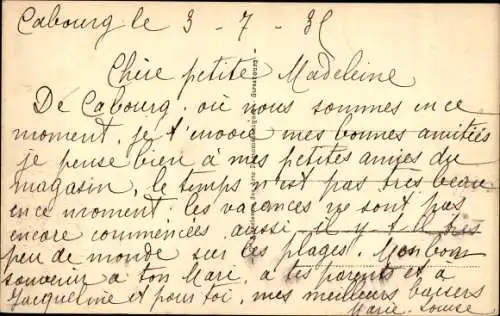 Cabourg le 3 - 7 - 35
Chère petite Madeleine
De Cabourg. où nous sommes en ce
moment, je t'envoie mes bonnes amitiés
je pense bien à mes petites amies du
magasin, le temps n'est pas très beau
en ce moment. les vacances ne sont pas
encore commencées aussi il y a très
peu de monde sur les plages. Mon bon
souvenir a ton Mari, a tes parents et a
Jacqueline et pour toi, mes meilleurs baisers
Marie-Louise